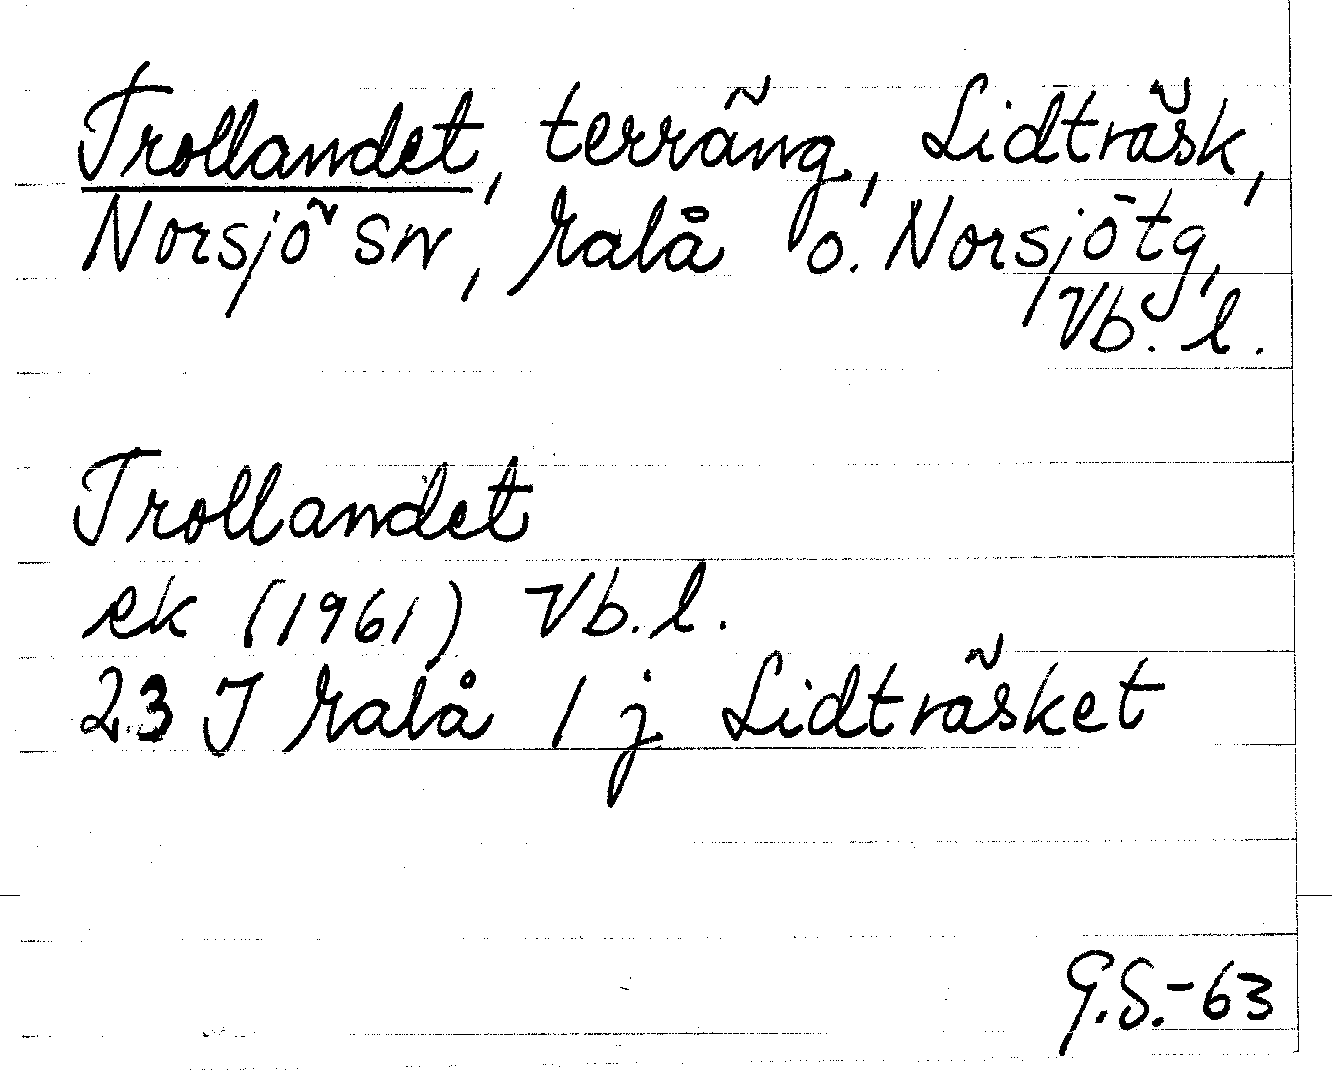 Trollandet, terräng, Lidträsk,
Norsjö sn, Malå o. Norsjö tg,
Vb. l.
Trollandet
ek (1961) Vb. l.
23 J Malå 1 j Lidträsket
G.S.-63